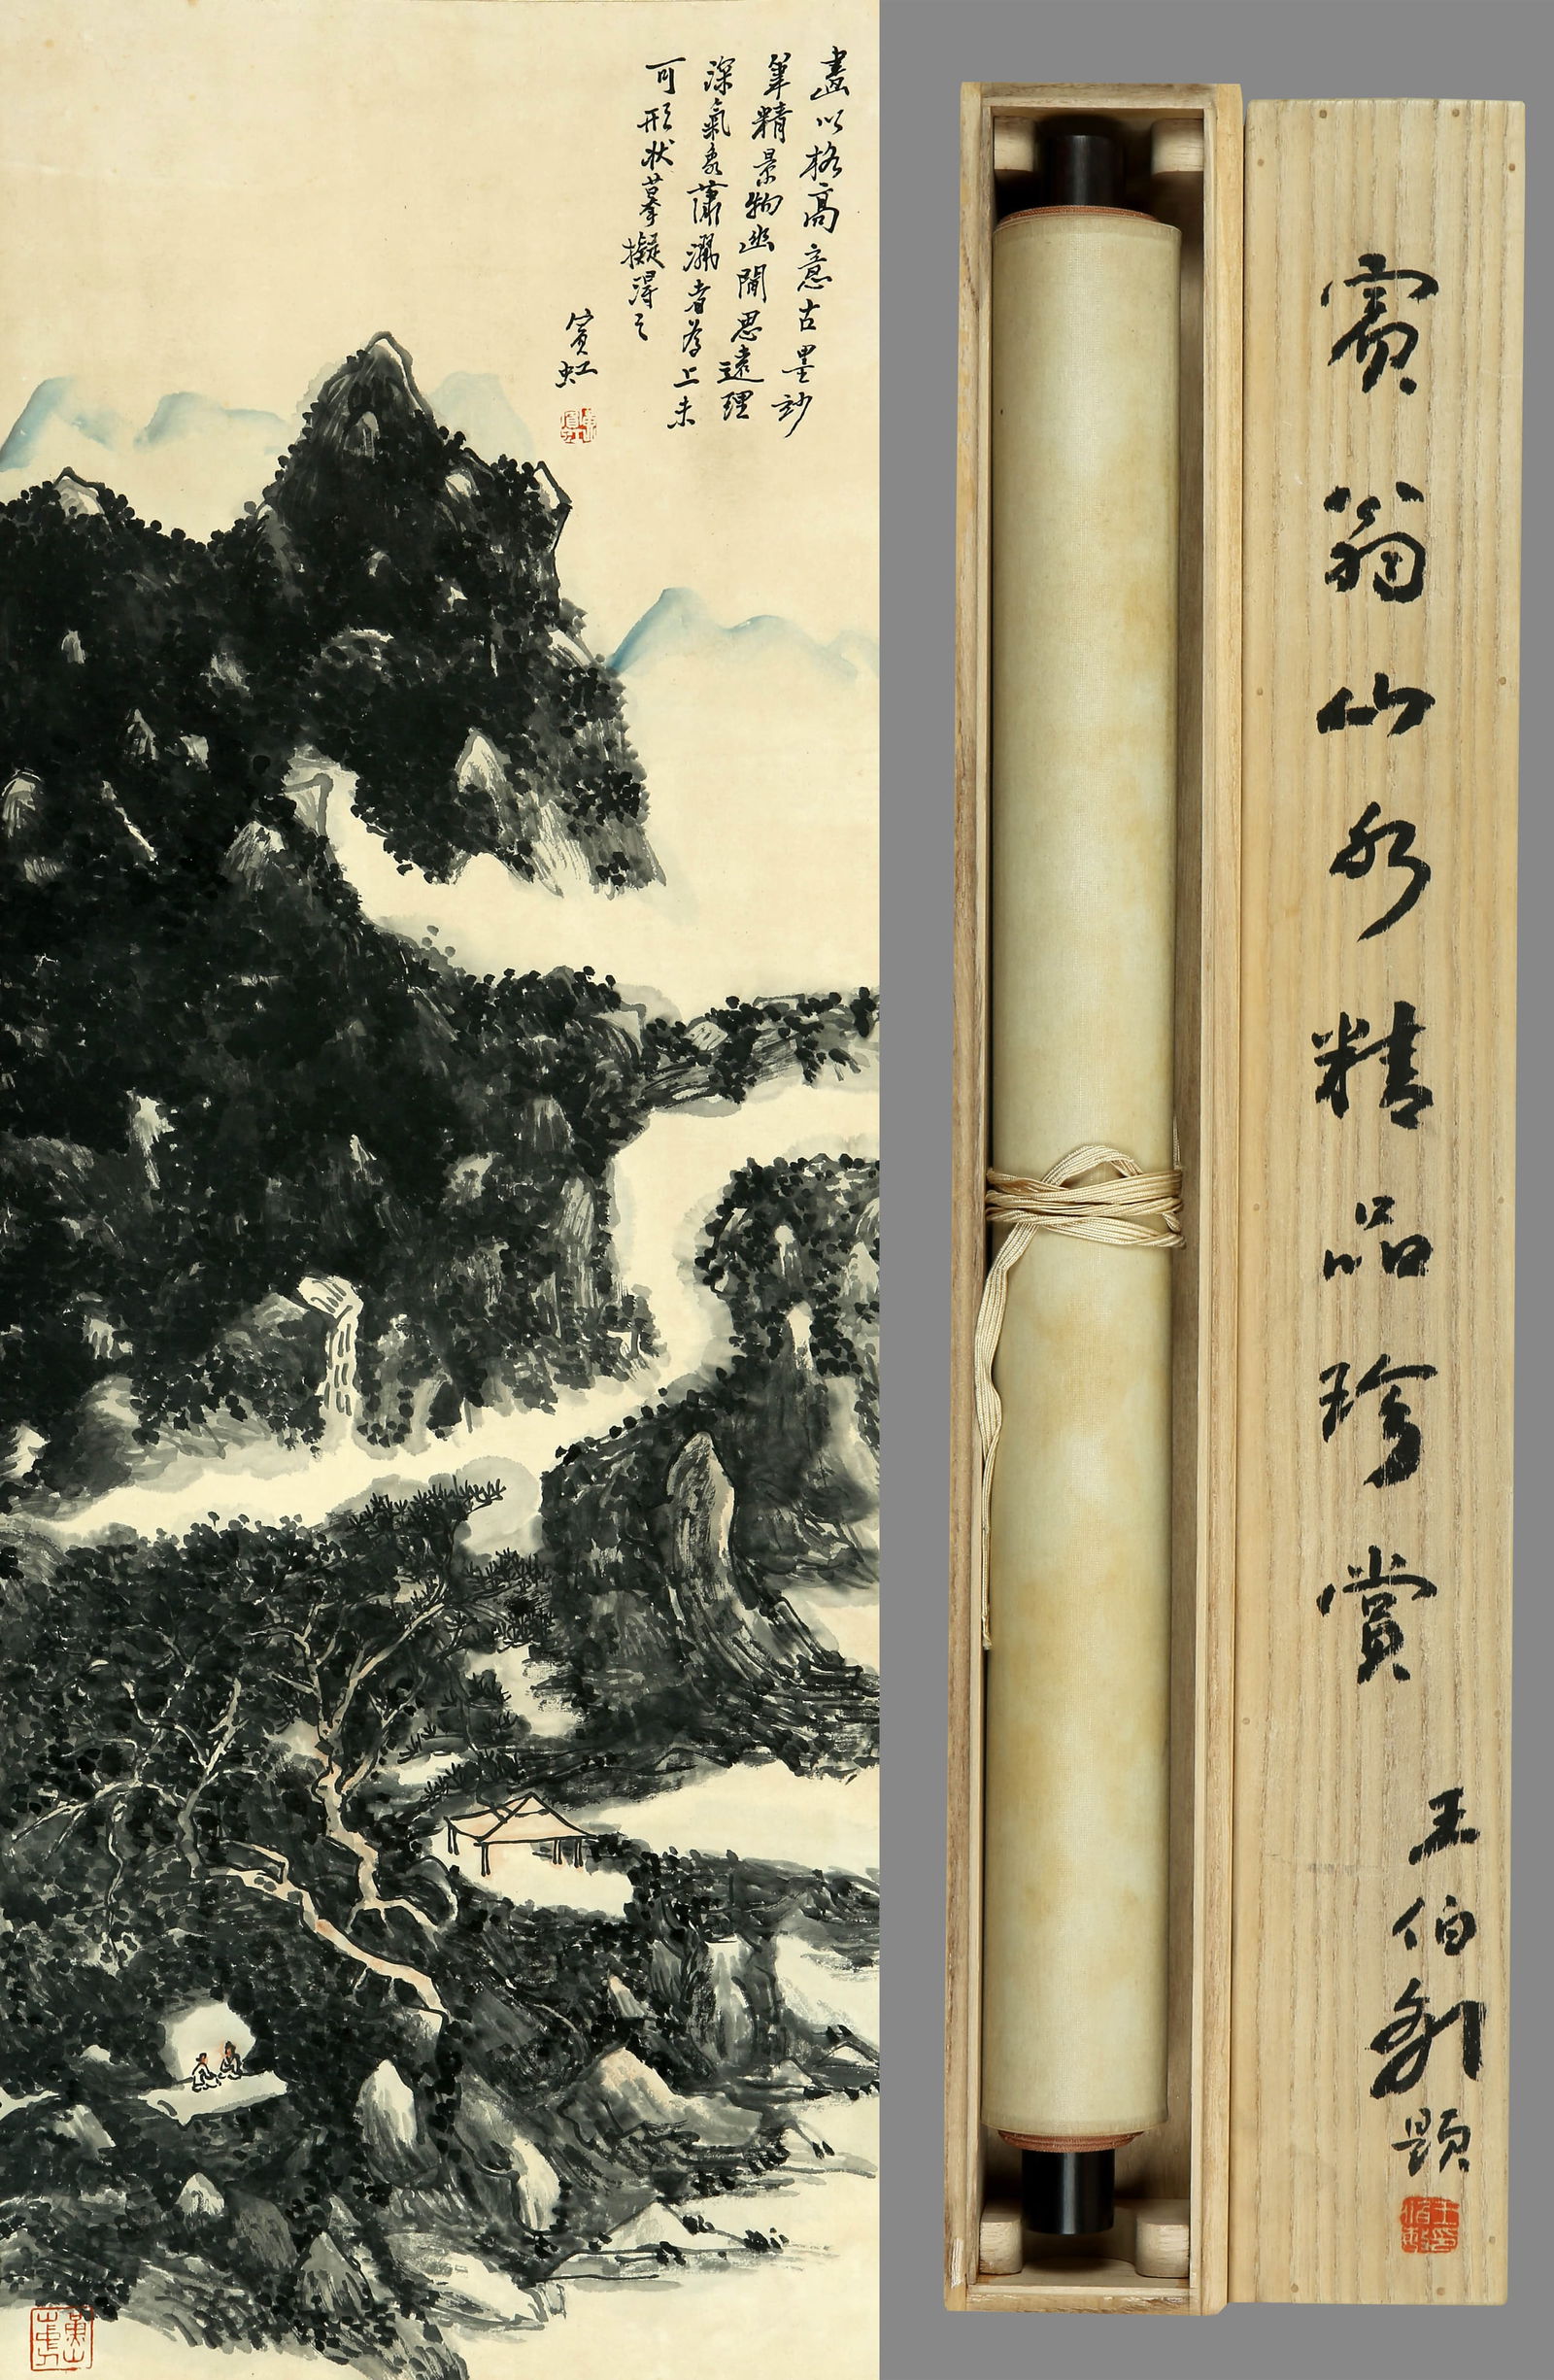 畫以格高意古墨妙
筆精景物幽閒思遠理
深氣象蕭灑者為上未
可形狀摹擬得之
賓虹
黄賓虹
賓翁山水精品珍賞
王伯敏題
王伯敏印
黄山